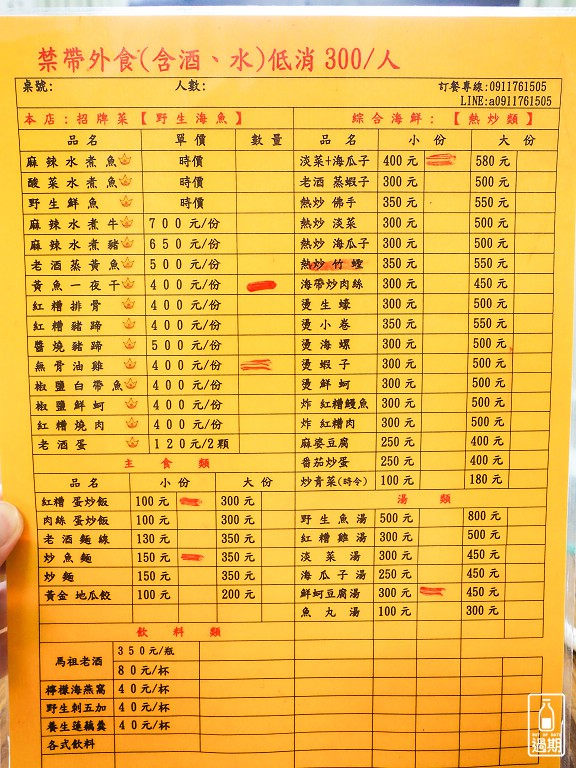 禁帶外食(含酒、水)低消 300/人
桌號: 人數: 訂餐專線:0911761505
LINE:a0911761505
本店:招牌菜【野生海魚】
品名 單價 數量
麻辣水煮魚 時價
酸菜水煮魚 時價
野生鮮魚 時價
麻辣水煮牛 700元/份
麻辣水煮豬 650元/份
老酒蒸黃魚 500元/份
黃魚一夜干 400元/份
紅糟排骨 400元/份
紅糟豬蹄 400元/份
醬燒豬蹄 500元/份
無骨油雞 400元/份
椒鹽白帶魚 400元/份
椒鹽鮮蚵 400元/份
紅糟燒肉 400元/份
老酒蛋 120元/2顆
主食類
品名 小份 大份
紅糟 蛋炒飯 100元 300元
肉絲 蛋炒飯 100元 300元
老酒麵線 130元 350元
炒魚麵 150元 350元
炒麵 150元 350元
黃金 地瓜餃 100元 200元
飲料類
馬祖老酒 350元/瓶
80元/杯
檸檬海燕窩 40元/杯
野生刺五加 40元/杯
養生蓮藕羹 40元/杯
各式飲料
綜合海鮮:【熱炒類】
品名 小份 大份
淡菜+海瓜子 400元 580元
老酒 蒸蝦子 300元 500元
熱炒 佛手 350元 550元
熱炒 淡菜 300元 500元
熱炒 海瓜子 300元 500元
熱炒 竹蟶 350元 550元
海帶炒肉絲 300元 450元
燙生蠔 300元 500元
燙小卷 350元 550元
燙海螺 300元 500元
燙蝦子 300元 500元
燙鮮蚵 300元 500元
炸 紅糟鰻魚 300元 500元
炸 紅糟肉 300元 500元
麻婆豆腐 250元 400元
番茄炒蛋 250元 400元
炒青菜(時令) 100元 180元
湯類
野生魚湯 500元 800元
紅糟雞湯 300元 500元
淡菜湯 300元 450元
海瓜子湯 250元 450元
鮮蚵豆腐湯 300元 450元
魚丸湯 100元 300元
OUT OF DATE
過期